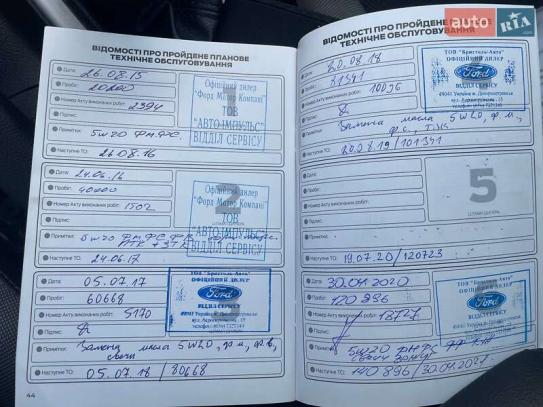 auto RIA.com
ВІДОМОСТІ ПРО ПРОЙДЕНЕ ПЛАНОВЕ
ТЕХНІЧНЕ ОБСЛУГОВУВАННЯ
Дата: 26.08.15
Пробіг: 20200
Номер Акту виконаних робіт: 2394
Підпис:
Примітки: 5w20 Фм Фс
Наступне ТО: 26.08.16
Офіційний дилер
"Форд Мотор Компані"
ТОВ
"АВТО-ІМПУЛЬС"
ВІДДІЛ СЕРВІСУ
Дата: 24.06.16
Пробіг: 40000
Номер Акту виконаних робіт: 1502
Підпис:
Примітки: 5w20 Фм Фс Фк
Наступне ТО: 24.06.17
2
Офіційний дилер
"Форд Мотор Компані"
ТОВ
"АВТО-ІМПУЛЬС"
ВІДДІЛ СЕРВІСУ
Дата: 05.07.17
Пробіг: 60668
Номер Акту виконаних робіт: 5170
Підпис:
Примітки: Заміна масла 5w20, ф.м, ф.в,
свічі
Наступне ТО: 05.07.18 / 80668
ТОВ "Бристоль-Авто"
ОФІЦІЙНИЙ ДИЛЕР
Ford
ВІДДІЛ СЕРВІСУ
44
ВІДОМОСТІ ПРО ПРОЙДЕНЕ ПЛАНОВЕ
ТЕХНІЧНЕ ОБСЛУГОВУВАННЯ
Дата: 20.08.18
Пробіг: 81341
Номер Акту виконаних робіт: 10096
Підпис:
Примітки: Заміна масла 5w20, ф.м,
ф.с,
Наступне ТО: 20.08.19 / 101341
ТОВ "Бристоль-Авто"
ОФІЦІЙНИЙ ДИЛЕР
Ford
ВІДДІЛ СЕРВІСУ
49041 Україна м. Дніпропетровськ
Дата:
Пробіг:
Номер Акту виконаних робіт:
Підпис:
Примітки:
Наступне ТО: 19.07.20 / 120723
5
ШТАМП ДИЛЕРА
Дата: 30.04.2020
Пробіг: 120 896
Номер Акту виконаних робіт: 18727
Підпис:
Примітки: 5w20 Фм Фс
Наступне ТО: 140 896 / 30.04.2021
ТОВ "Бристоль-Авто"
ОФІЦІЙНИЙ ДИЛЕР
Ford
ВІДДІЛ СЕРВІСУ